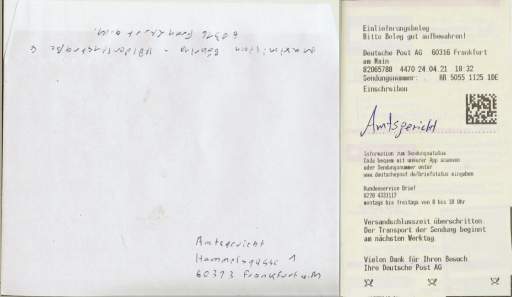 60316 Frankfurt a.M.
Amtsgericht
Hammelsgasse 1
60313 Frankfurt a.M
Einlieferungsbeleg
Bitte Beleg gut aufbewahren!
Deutsche Post AG 60316 Frankfurt
am Main
82065788 4470 24.04.21 10:32
Sendungsnummer: RR 5055 1125 1DE
Einschreiben
Amtsgericht
Information zum Sendungsstatus
Code bequem mit unserer App scannen
oder Sendungsnummer unter
www.deutschepost.de/briefstatus eingeben
Kundenservice Brief
0228 4333112
montags bis freitags von 8 bis 18 Uhr
Versandschlusszeit überschritten.
Der Transport der Sendung beginnt
am nächsten Werktag.
Vielen Dank für Ihren Besuch
Ihre Deutsche Post AG